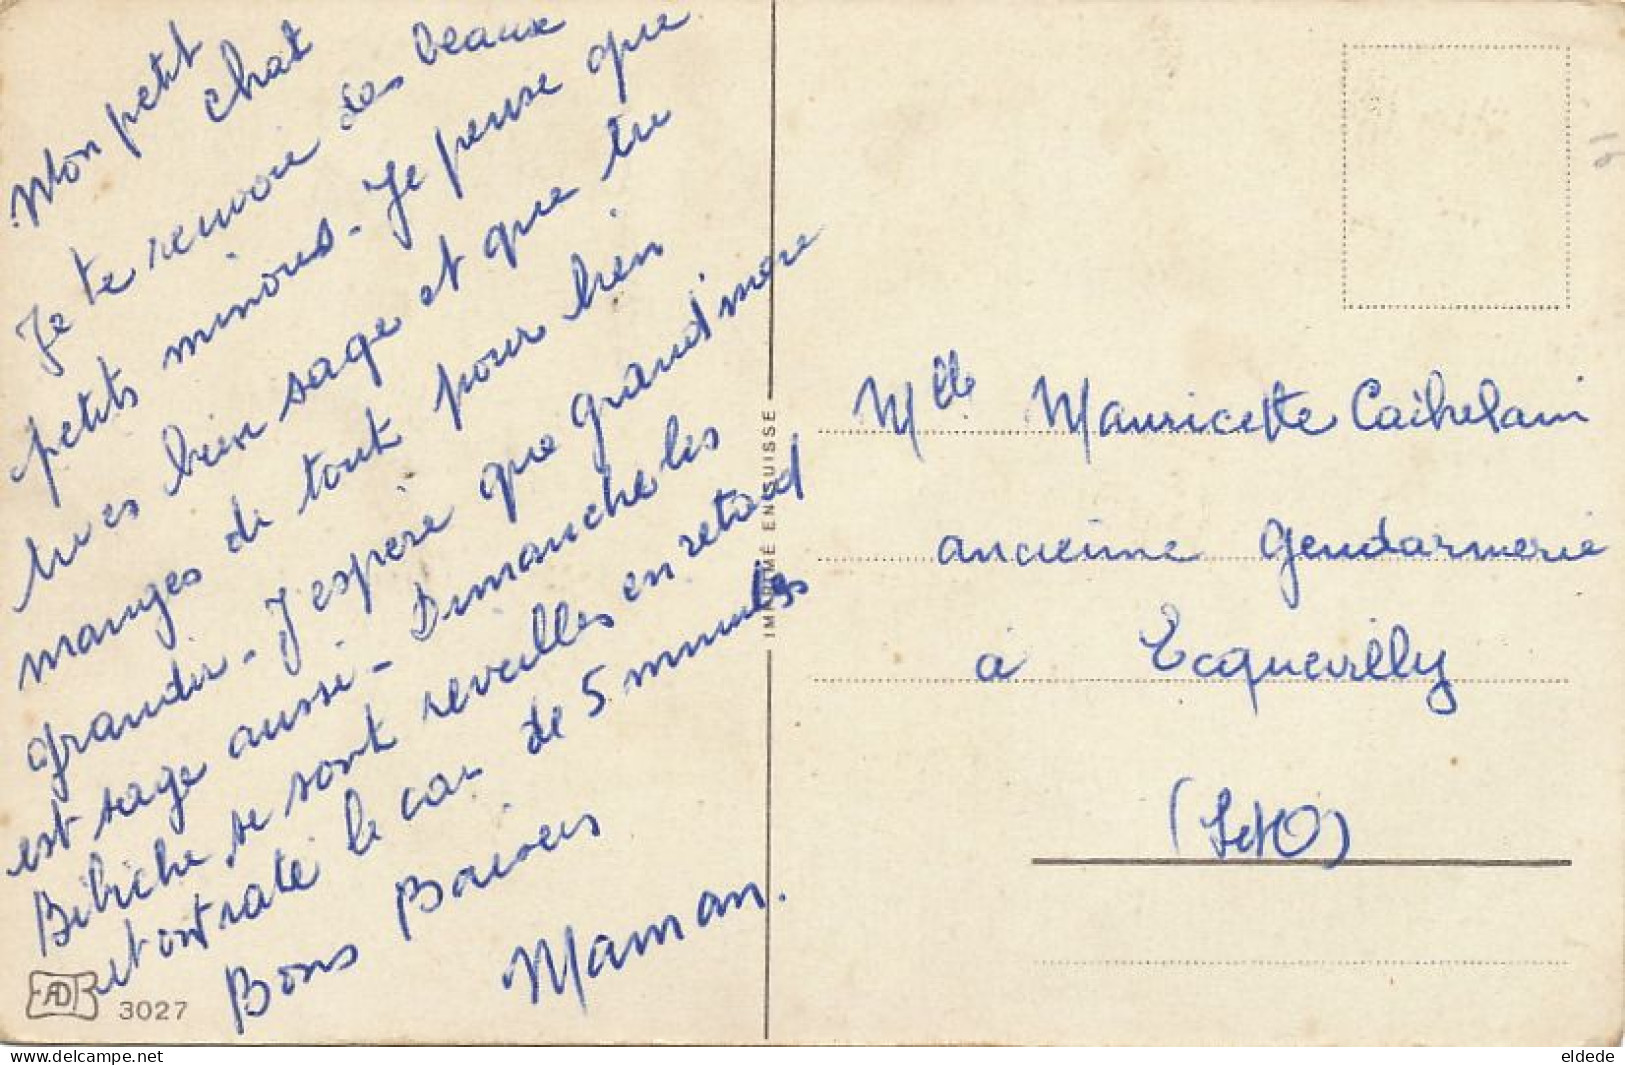 Mon petit
chat
Je te renvoie des beaux
petits minous - Je pense que
tu es bien sage et que tu
manges de tout pour bien
grandir - J'espère que grand'mère
est sage aussi - Dimanche les
Bibiche se sont reveillés en retard
et ont raté le car de 5 minutes
Bons Baisers
Maman.
3027
IMPRIMÉ EN SUISSE
Mlle Mauricette Cathelain
ancienne Gendarmerie
à Ecquevilly
(S et O)
www.delcampe.net
eldede